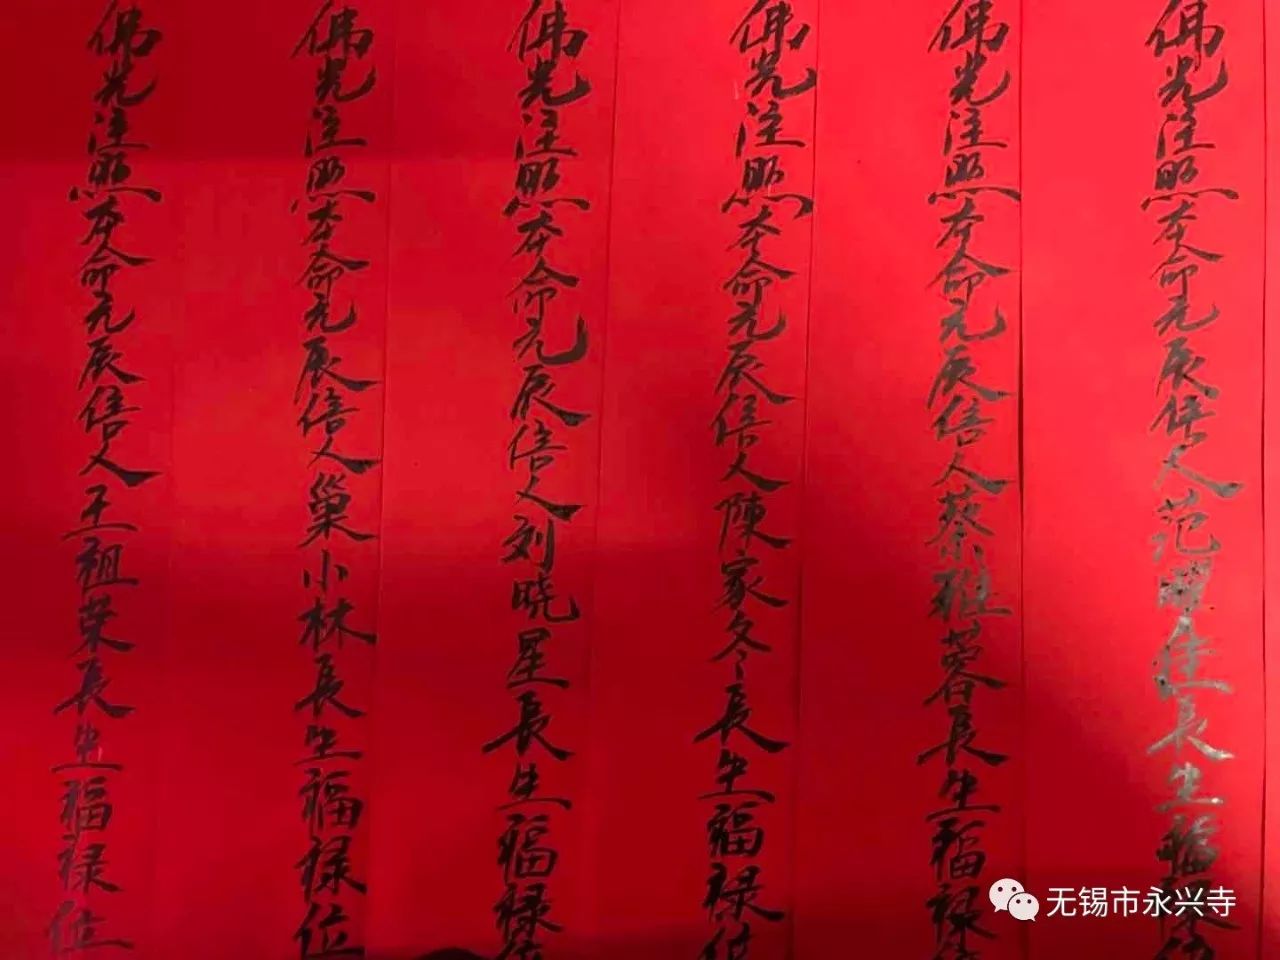 佛光注照本命元辰信人范耀佳長生福祿位
佛光注照本命元辰信人蔡雅蓉長生福祿位
佛光注照本命元辰信人陳家冬長生福祿位
佛光注照本命元辰信人刘晓星長生福祿位
佛光注照本命元辰信人巢小林長生福祿位
佛光注照本命元辰信人王祖荣長生福祿位
无锡市永兴寺